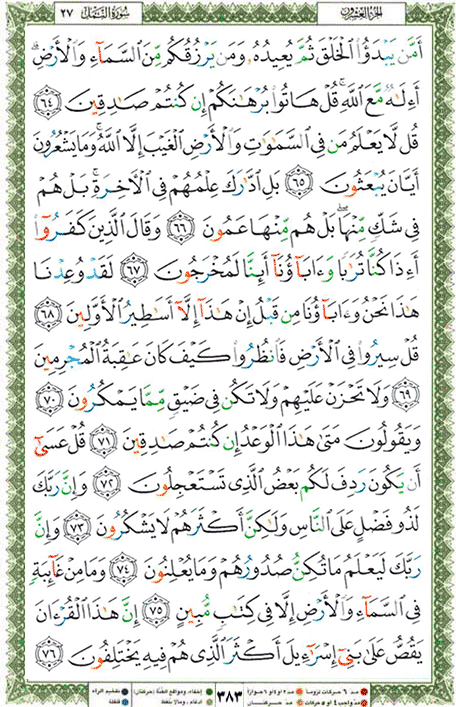 الجزء العشرون
سورة النمل ٢٧
أَمَّن يَبْدَؤُا۟ ٱلْخَلْقَ ثُمَّ يُعِيدُهُۥ وَمَن يَرْزُقُكُم مِّنَ ٱلسَّمَآءِ وَٱلْأَرْضِ ۗ
أَءِلَٰهٌ مَّعَ ٱللَّهِ ۚ قُلْ هَاتُوا۟ بُرْهَٰنَكُمْ إِن كُنتُمْ صَٰدِقِينَ ٦٤
قُل لَّا يَعْلَمُ مَن فِى ٱلسَّمَٰوَٰتِ وَٱلْأَرْضِ ٱلْغَيْبَ إِلَّا ٱللَّهُ ۚ وَمَا يَشْعُرُونَ
أَيَّانَ يُبْعَثُونَ ٦٥ بَلِ ٱدَّٰرَكَ عِلْمُهُمْ فِى ٱلْءَاخِرَةِ ۚ بَلْ هُمْ
فِى شَكٍّ مِّنْهَا ۖ بَلْ هُم مِّنْهَا عَمُونَ ٦٦ وَقَالَ ٱلَّذِينَ كَفَرُوٓا۟
أَءِذَا كُنَّا تُرَٰبًا وَءَابَآؤُنَآ أَئِنَّا لَمُخْرَجُونَ ٦٧ لَقَدْ وُعِدْنَا
هَٰذَا نَحْنُ وَءَابَآؤُنَا مِن قَبْلُ إِنْ هَٰذَآ إِلَّآ أَسَٰطِيرُ ٱلْأَوَّلِينَ ٦٨
قُلْ سِيرُوا۟ فِى ٱلْأَرْضِ فَٱنظُرُوا۟ كَيْفَ كَانَ عَٰقِبَةُ ٱلْمُجْرِمِينَ
٦٩ وَلَا تَحْزَنْ عَلَيْهِمْ وَلَا تَكُن فِى ضَيْقٍ مِّمَّا يَمْكُرُونَ ٧٠
وَيَقُولُونَ مَتَىٰ هَٰذَا ٱلْوَعْدُ إِن كُنتُمْ صَٰدِقِينَ ٧١ قُلْ عَسَىٰٓ
أَن يَكُونَ رَدِفَ لَكُم بَعْضُ ٱلَّذِى تَسْتَعْجِلُونَ ٧٢ وَإِنَّ رَبَّكَ
لَذُو فَضْلٍ عَلَى ٱلنَّاسِ وَلَٰكِنَّ أَكْثَرَهُمْ لَا يَشْكُرُونَ ٧٣ وَإِنَّ
رَبَّكَ لَيَعْلَمُ مَا تُكِنُّ صُدُورُهُمْ وَمَا يُعْلِنُونَ ٧٤ وَمَا مِنْ غَآئِبَةٍ
فِى ٱلسَّمَآءِ وَٱلْأَرْضِ إِلَّا فِى كِتَٰبٍ مُّبِينٍ ٧٥ إِنَّ هَٰذَا ٱلْقُرْءَانَ
يَقُصُّ عَلَىٰ بَنِىٓ إِسْرَٰٓءِيلَ أَكْثَرَ ٱلَّذِى هُمْ فِيهِ يَخْتَلِفُونَ ٧٦
مد ٦ حركات لزوماً مد ٢ او ٤ او ٦ جوازاً إخفاء، ومواقع الغنة (حركتان) تفخيم الراء
مد واجب ٤ او ٥ حركات مد حركتان ادغام، وما لا يلفظ قلقلة
٣٨٣